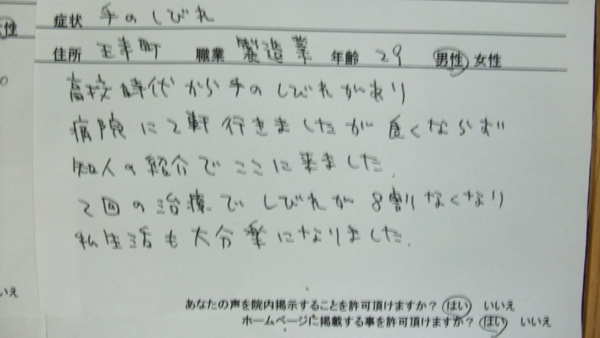 症状 手のしびれ
性
住所 玉東町 職業 製造業 年齢 29 男性 女性
高校時代から手のしびれがあり
病院に2軒行きましたが良くならず
知人の紹介でここに来ました.
2回の治療でしびれが8割なくなり
私生活も大分楽になりました.
いえ
あなたの声を院内掲示することを許可頂けますか? はい いいえ
ホームページに掲載する事を許可頂けますか? はい いいえ